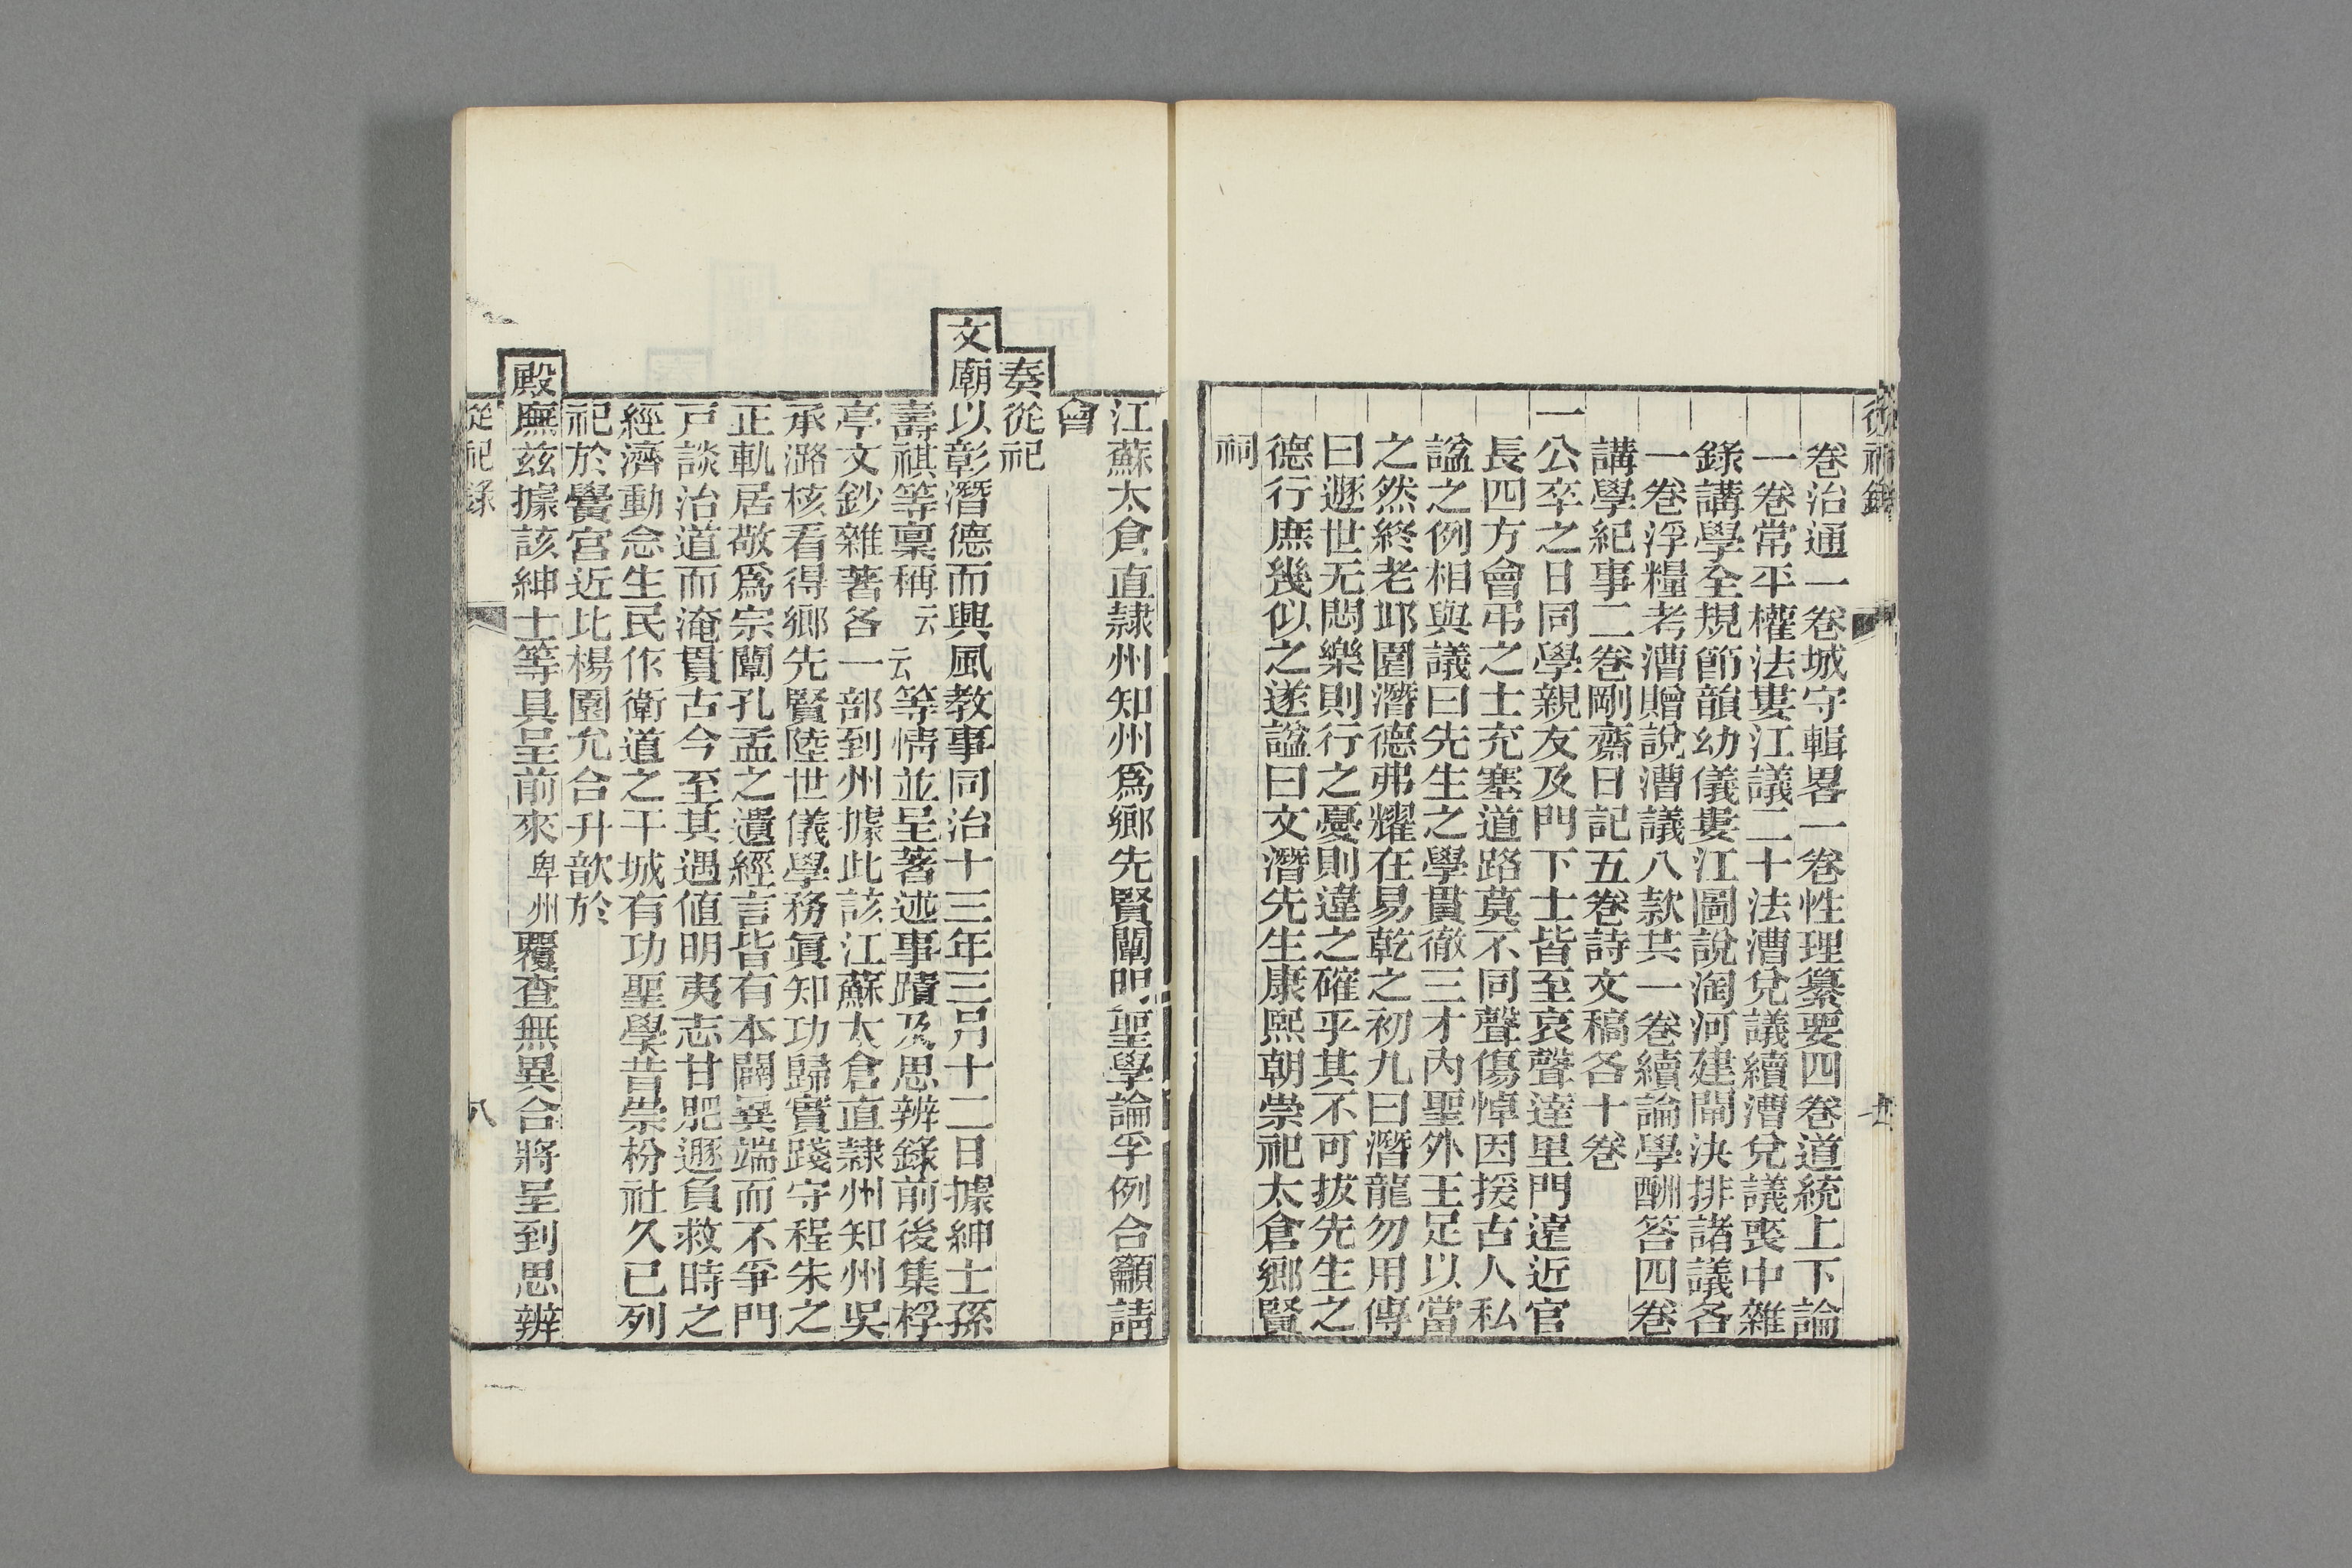 從祀錄
卷治通一卷城守輯畧一卷性理纂要四卷道統上下論
一卷常平權法婁江議二十法漕兌議續漕兌議喪中雜
錄講學全規節韻幼儀婁江圖說淘河建閘決排諸議各
一卷浮糧考漕贈說漕議八款共一卷續論學酬答四卷
講學紀事二卷剛齋日記五卷詩文稿各十卷
一公卒之日同學親友及門下士皆至哀聲達里門遠近官
長四方會弔之士充塞道路莫不同聲傷悼因援古人私
諡之例相與議曰先生之學貫徹三才內聖外王足以當
之然終老邱園潛德弗耀在易乾之初九曰潛龍勿用傳
曰遯世无悶樂則行之憂則違之確乎其不可拔先生之
德行庶幾似之遂諡曰文潛先生康熙朝崇祀太倉鄉賢
祠
江蘇太倉直隸州知州爲鄉先賢闡明聖學論孚例合籲請
會
奏從祀
文廟以彰潛德而興風教事同治十三年三月十二日據紳士孫
壽祺等禀稱云云等情並呈著述事蹟及思辨錄前後集桴
亭文鈔雜著各一部到州據此該江蘇太倉直隸州知州吳
承潞核看得鄉先賢陸世儀學務眞知功歸實踐守程朱之
正軌居敬爲宗闡孔孟之遺經言皆有本闢異端而不爭門
戸談治道而淹貫古今至其遇値明夷志甘肥遯負救時之
經濟動念生民作衛道之干城有功聖學昔崇枌社久已列
祀於黌宮近比楊園允合升歆於
殿廡茲據該紳士等具呈前來卑州覆查無異合將呈到思辨
從祀錄
八